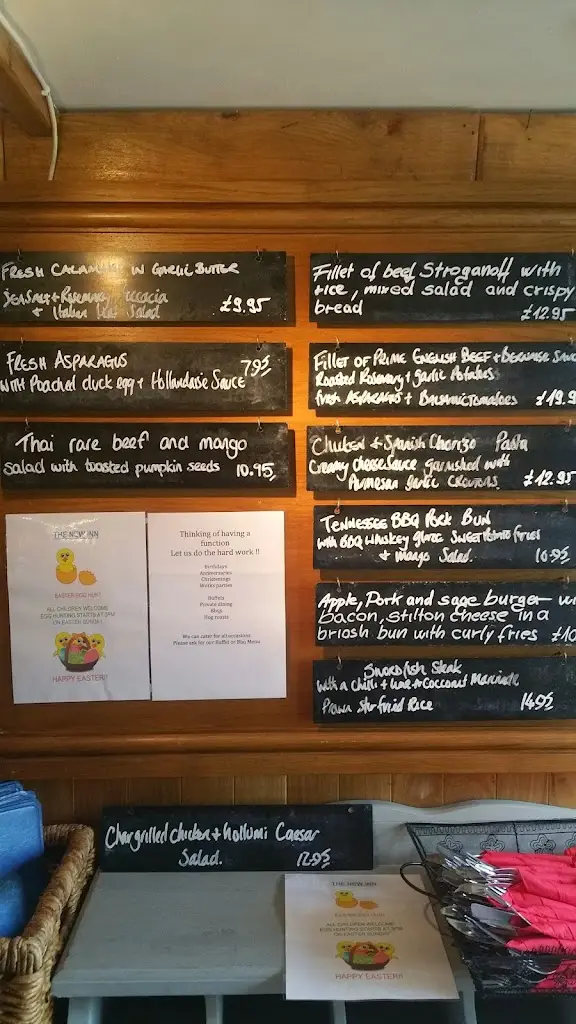 FRESH CALAMARI IN GARLIC BUTTER
SEA SALT + ROSEMARY FOCACCIA
+ ITALIAN SALAD £9.95
FRESH ASPARAGUS 7.95
WITH POACHED DUCK EGG + HOLLANDAISE SAUCE
Thai rare beef and mango
Salad with toasted pumpkin seeds 10.95
THE NEW INN
EASTER EGG HUNT
ALL CHILDREN WELCOME
EGG HUNTING STARTS AT 2PM
ON EASTER SUNDAY
HAPPY EASTER!!
Thinking of having a
function
Let us do the hard work !!
Birthdays
Anniversaries
Christenings
Works parties
Buffets
Private dining
Bbqs
Hog roasts
We can cater for all occasions
Please ask for our Buffet or Bbq Menu
Fillet of beef Stroganoff with
rice, mixed salad and crispy
bread £12.95
FILLET OF PRIME ENGLISH BEEF + BEARNAISE SAUC
Roasted Rosemary + garlic Potatoes
fresh ASPARAGUS + BALSAMIC TOMATOES £19.9
Chicken + Spanish Chorizo Pasta
Creamy cheese Sauce garnished with
Parmesan garlic croutons £12.95
TENNESSEE BBQ PORK BUN
with BBQ WHISKEY GLAZE SWEET POTATO FRIES
+ Mango Salad. 10.95
Apple, Pork and sage burger wi
bacon, stilton cheese in a
briosh bun with curly fries £10
Swordfish Steak
with a Chilli + Lime + Coconut Marinade
Prawn Stir fried Rice 14.95
Chargrilled chicken + hollumi Caesar
Salad. 12.95
THE NEW INN
EASTER EGG HUNT
ALL CHILDREN WELCOME
EGG HUNTING STARTS AT 2PM
ON EASTER SUNDAY
HAPPY EASTER!!